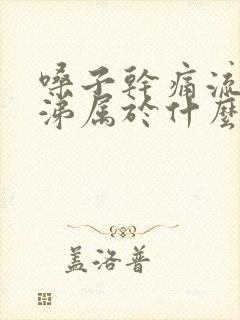 嗓子幹痛流
涕属於什麼
盖洛普